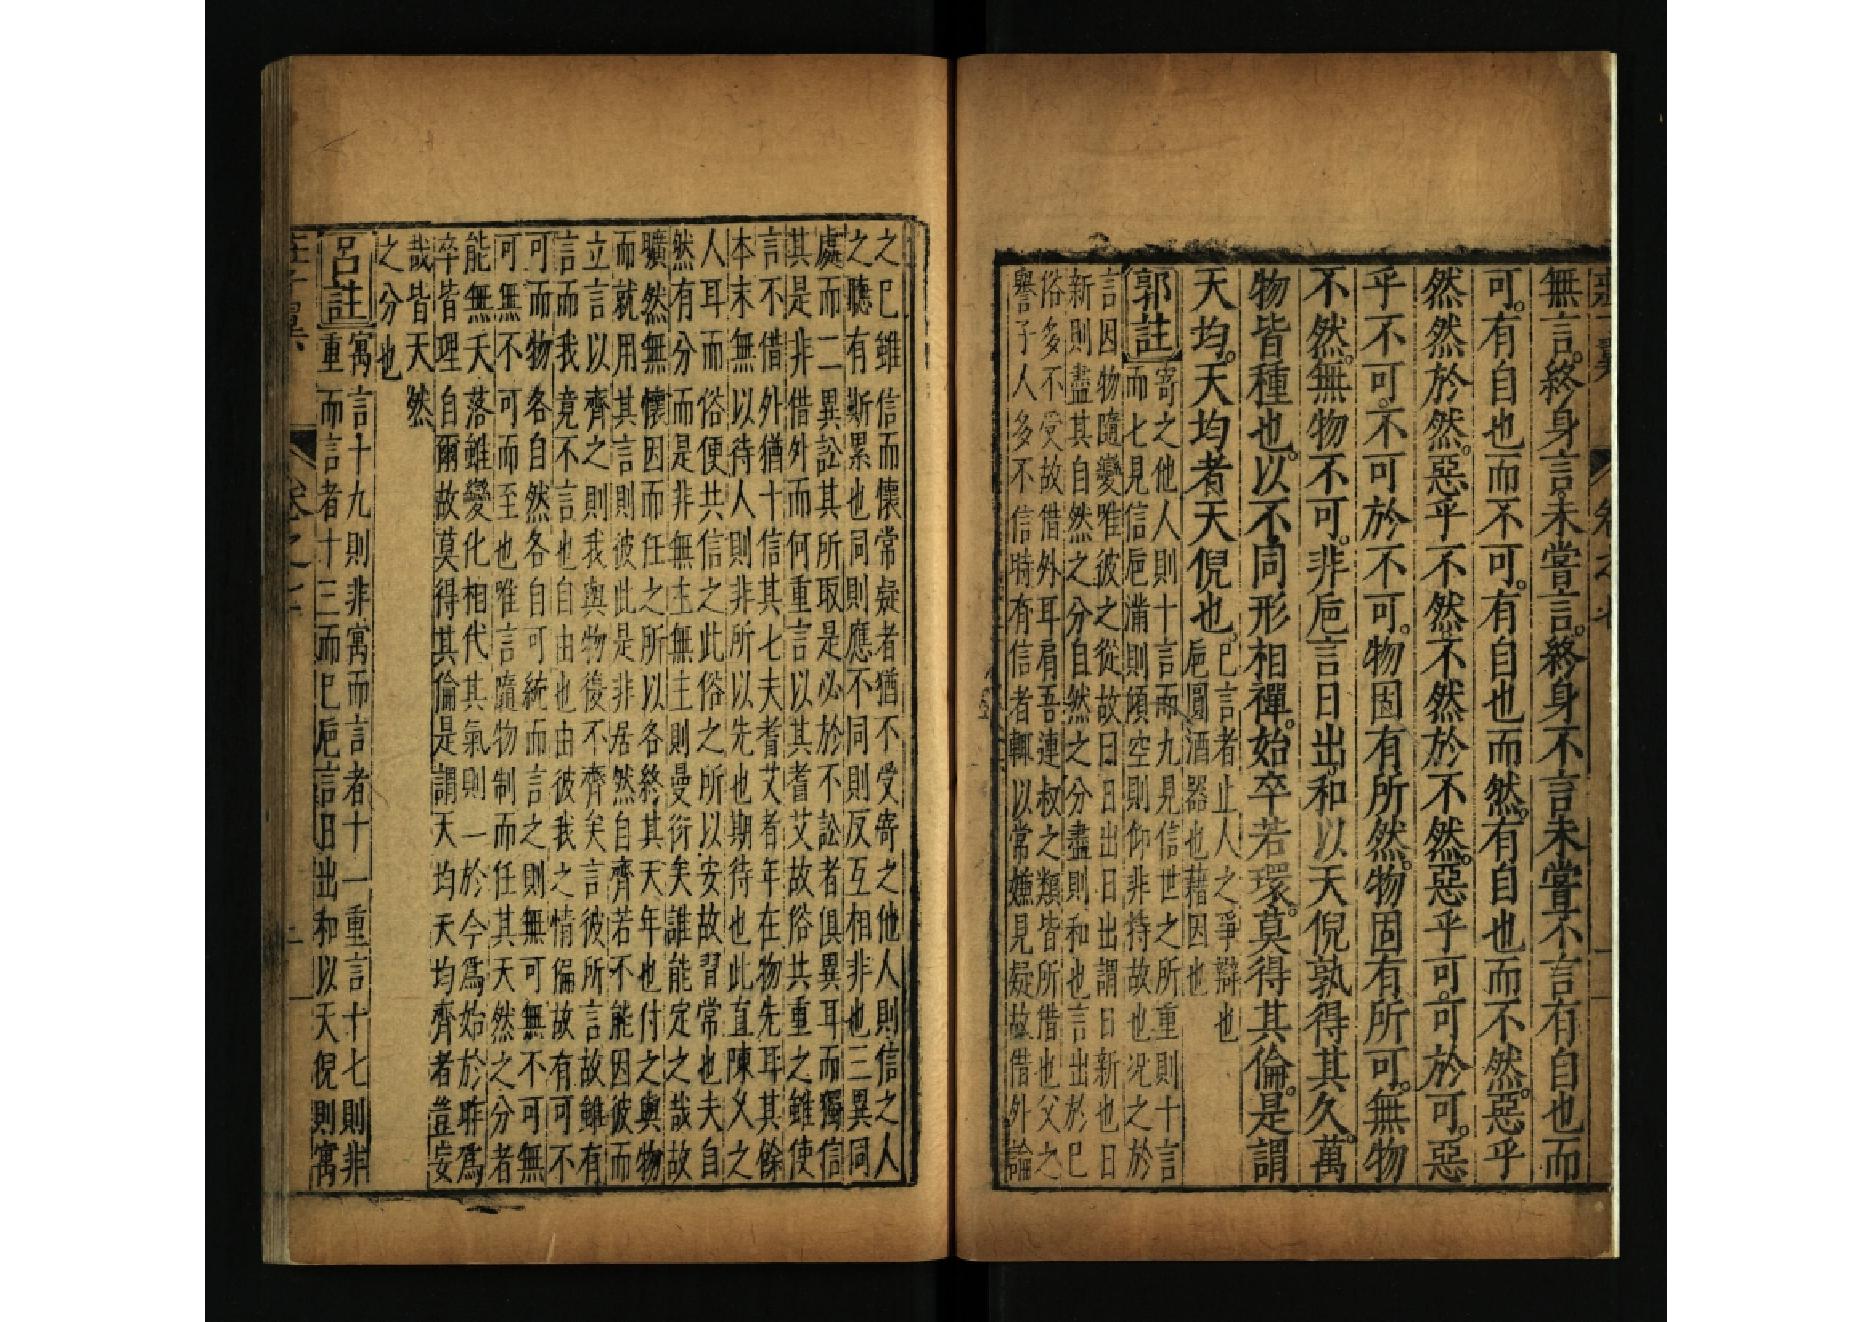 莊子翼 卷之七 一
無言。終身言。未嘗言。終身不言。未嘗不言。有自也而
可。有自也而不可。有自也而然。有自也而不然。惡乎
然。然於然。惡乎不然。不然於不然。惡乎可。可於可。惡
乎不可。不可於不可。物固有所然。物固有所可。無物
不然。無物不可。非巵言日出。和以天倪。孰得其久。萬
物皆種也。以不同形相禪。始卒若環。莫得其倫。是謂
天均。天均者。天倪也。已言者止人之爭辯也
巵圓酒器也藉因也
郭註 寄之他人則十言而九見信世之所重則十言
而七見信巵滿則傾空則仰非持故也况之於
言因物隨變唯彼之從故曰日出日出謂日新也日
新則盡其自然之分自然之分盡則和也言出於已
俗多不受故借外耳肩吾連叔之類皆所借也父之
譽子人多不信時有信者輒以常嫌見疑故借外論
之已雖信而懷常疑者猶不受寄之他人則信之人
之聽有斯累也同則應不同則反互相非也三異同
處而二異訟其所取是必於不訟者俱異耳而獨信
其是非借外而何重言以其耆艾故俗共重之雖使
言不借外猶十信其七夫耆艾者年在物先耳其餘
本末無以待人則非所以先也期待也此直陳乂之
人耳而俗便共信之此俗之所以安故習常也夫自
然有分而是非無主無主則曼衍矣誰能定之哉故
曠然無懷因而任之所以各終其天年也付之與物
而就用其言則彼此是非居然自齊若不能因彼而
立言以齊之則我與物復不齊矣言彼所言故雖有
言而我竟不言也自由也由彼我之情偏故有可不
可而物各自然各自可統而言之則無可無不可無
可無不可而至也唯言隨物制而任其天然之分者
能無夭落雖變化相代其氣則一於今爲始於昨爲
卒皆理自爾故莫得其倫是謂天均天均齊者豈妄
哉皆天然
之分也
呂註 寓言十九則非寓而言者十一重言十七則非
重而言者十三而已巵言日出和以天倪則寓
莊子翼 卷之七 二